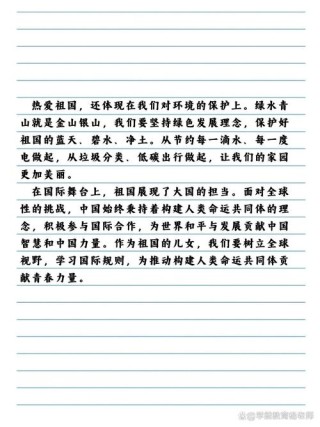 热爱祖国，还体现在我们对环境的保护上。绿水青
山就是金山银山，我们要坚持绿色发展理念，保护好
祖国的蓝天、碧水、净土。从节约每一滴水、每一度
电做起，从垃圾分类、低碳出行做起，让我们的家园
更加美丽。
在国际舞台上，祖国展现了大国的担当。面对全球
性的挑战，中国始终秉持着构建人类命运共同体的理
念，积极参与国际合作，为世界和平与发展贡献中国
智慧和中国力量。作为祖国的儿女，我们要树立全球
视野，学习国际规则，为推动构建人类命运共同体贡
献青春力量。